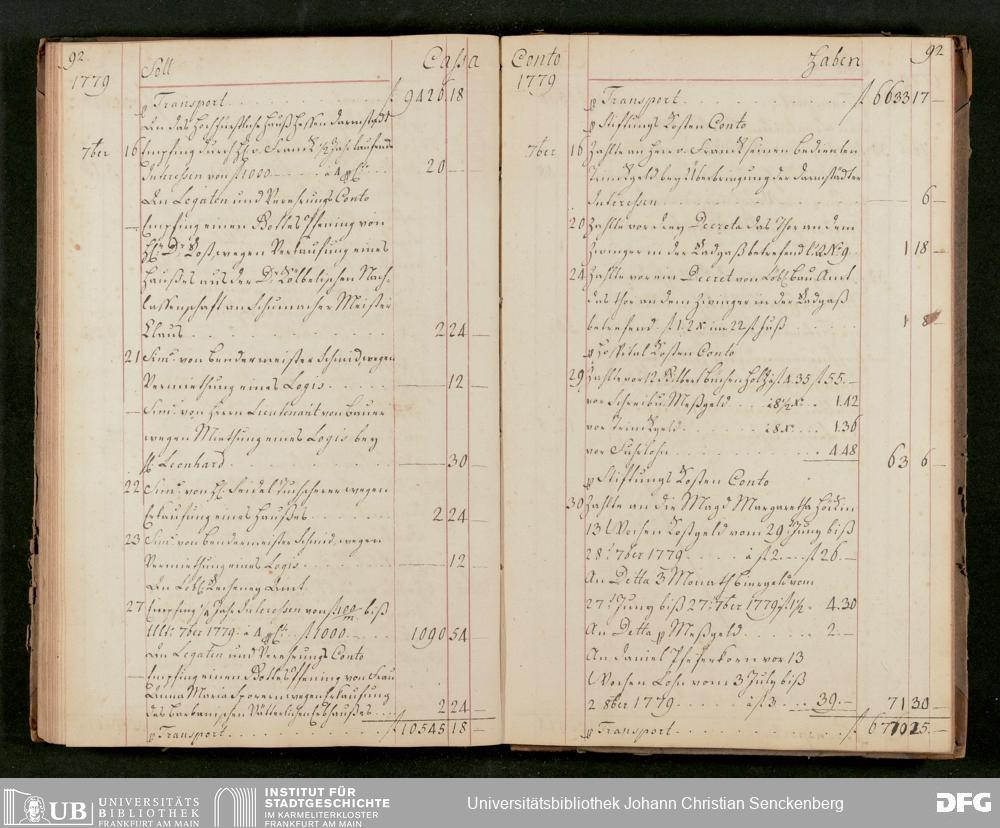 92. Soll Cassa
1779
p Transport . . . f 9426 18
An das Hochfürstliche Hauß Hessen Darmstadt
7ber 16 Empfing durch H. v. Franck 1/2 Jahr laufende
Interessen von f 1000 . . à 4 p Ct. 20 —
An Legaten und Verehrungs Conto
— Empfing einen Gottes Pfening von
H. Dr. wegen Verkaufung eines
Haußes aus der Dr. Nach-
lassenschaft an Schumacher Meister
Claus . . . 2 24 —
21 Simil. von Bendermeister Schmid, wegen
Vermiethung eines Logis . . . — 12 —
— Simil. von Herrn Lieutenant von Bauer
wegen Miethung eines Logis bey
St. Leonhard . . . — 30 —
22 Simil. von H. Seidel wegen
Erkaufung eines Haußes . . . 2 24
23 Simil. von Bendermeister Schmid, wegen
Vermiethung eines Logis . . . — 12 —
An Löbl. Recheney Amt
27 Empfing Jahr Interessen von biß
Ult. 7ber 1779. à 4 p Ct. 1090 54
An Legaten und Verehrungs Conto
— Empfing einen Gottes Pfening von Frau
Anna Maria wegen Erkaufung
des Haußes . . . 2 24 —
p Transport . . . f 10545 18 —
Conto Haben 92
1779
p Transport . . . f 6633 17 —
p Stiftungs Kosten Conto
7ber 16 Zahlte an Herr v. Franck seinen Bedienten
Trinckgeld bey Überbringung der Darmstädter
Interessen . . . — 6 —
20 Zahlte vor Decreta das Thor an dem
Zwinger in der Radgaß betrefend N. 9. 1 18 —
24 Zahlte vor ein Decret von Löbl. Bau Amt
das Thor an dem Zwinger in der Radgaß
betrefend f 1. 2 x im 22 f fuß . . . 1 8
p Hospital Kosten Conto
29 Zahlte vor 12 Gilbert Büchen Holtz à f 4.35. f 55. —
vor Schreib u. Meßgeld . . . à 8 1/2 x . . 1.42
vor Trinckgeld . . . à 8 x . . 1.36
vor Fuhrlohn . . . 4.48
63 6 —
p Stiftungs Kosten Conto
30 Zahlte an die Magd Margaretha
13 Wochen Kostgeld vom 29. Juny biß
28. 7ber 1779 . . . à f 2. — f 26. —
An Detta 3 Monath Biergeld vom
27. Juny biß 27. 7ber 1779 à f 1 1/2 - 4.30
An Detta p Meßgeld . . . 2. —
An Daniel Pfeferkorn vor 13
Wochen Lohn vom 3 July biß
2 8ber 1779 . . . à f 3 . . . 39. — 71 30 —
p Transport . . .
UB UNIVERSITÄTS
BIBLIOTHEK
FRANKFURT AM MAIN
INSTITUT FÜR
STADTGESCHICHTE
IM KARMELITERKLOSTER
FRANKFURT AM MAIN
Universitätsbibliothek Johann Christian Senckenberg
DFG